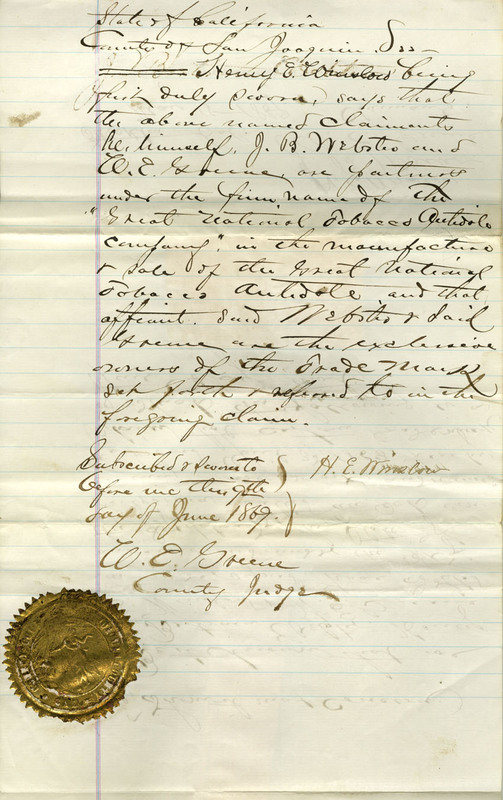 State of California
County of San Joaquin } ss
Henry E. Winslow being
first duly sworn, says that
the above named claimants
he, himself, J. B. Webster and
W. E. Greene, are partners
under the firm name of The
"Great National Tobacco Antidote
Company", in the manufacture
& sale of the Great National
Tobacco Antidote and that
affiant. Said Webster & said
Greene are the exclusive
owners of the Trade Mark
set forth & referred to in the
foregoing claim.
Subscribed & sworn to
before me this 9th
day of June 1869.
H. E. Winslow
W. E. Greene
County Judge